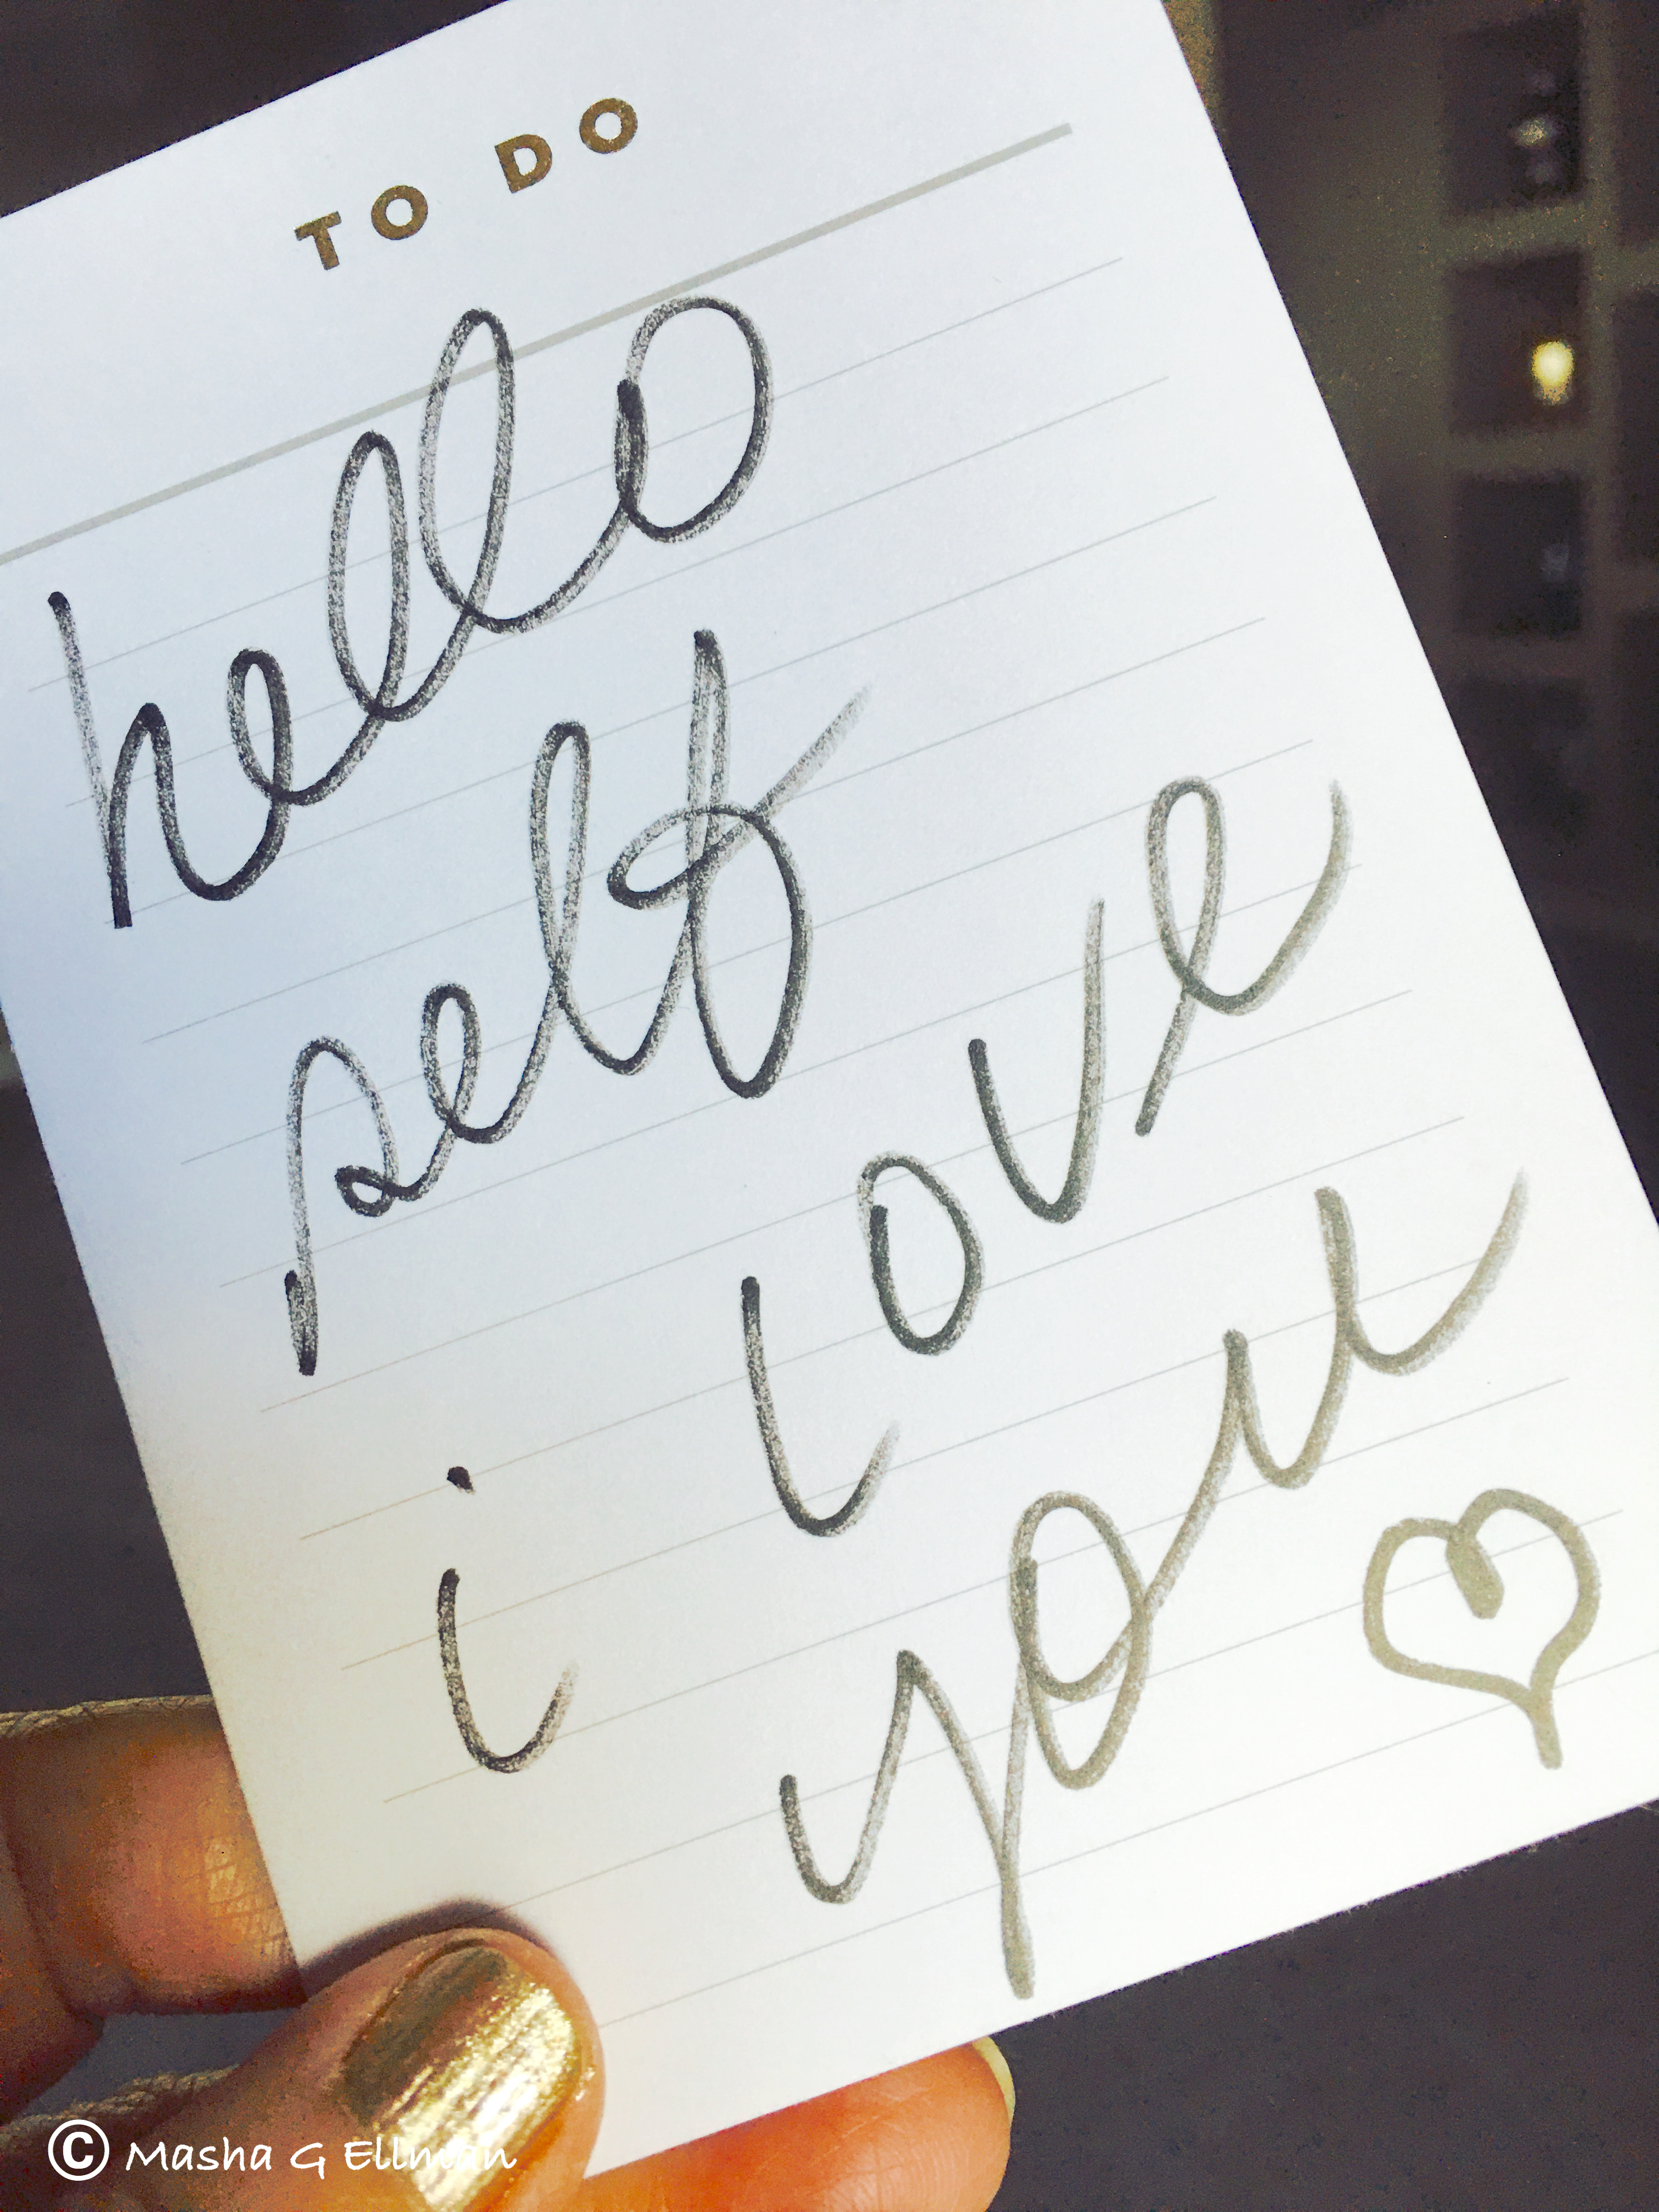 TO DO
hello
self
i love
you
© Masha G Ellman